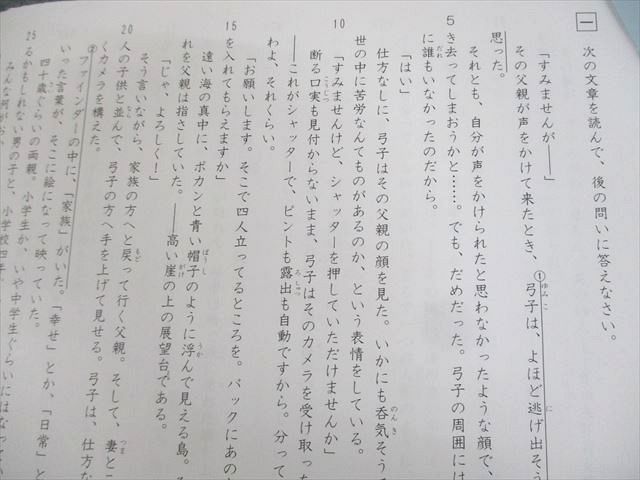 一
次の文章を読んで、後の問いに答えなさい。
「すみませんが――」
その父親が声をかけて来たとき、①弓子は、よほど逃げ出そう
思った。
それとも、自分が声をかけられたと思わなかったような顔で、
5 き去ってしまおうかと……。でも、だめだった。弓子の周囲には
に誰もいなかったのだから。
「はい」
仕方なしに、弓子はその父親の顔を見た。いかにも呑気そう
世の中に苦労なんてものがあるのか、という表情をしている。
10 「すみませんけど、シャッターを押していただけませんか」
断る口実も見付からないまま、弓子はそのカメラを受け取っ
――これがシャッターで、ピントも露出も自動ですから。分って
わよ、それくらい。
「お願いします。そこで四人立ってるところを。バックにあの
15 を入れてもらえますか」
遠い海の真中に、ポカンと青い帽子のように浮んで見える島。
れを父親は指さしていた。――高い崖の上の展望台である。
「じゃ、よろしく！」
そう言いながら、家族の方へと戻って行く父親。そして、妻と
20 人の子供と並んで、弓子の方へ手を上げて見せる。弓子は、仕方な
くカメラを構えた。
②ファインダーの中に、「家族」がいた。「幸せ」とか、「日常」と
いった言葉が、そこに絵になって映っていた。
四十歳ぐらいの両親。小学生か、いや中学生ぐらいにはなってい
25 るかもしれない男の子と、小学校四年